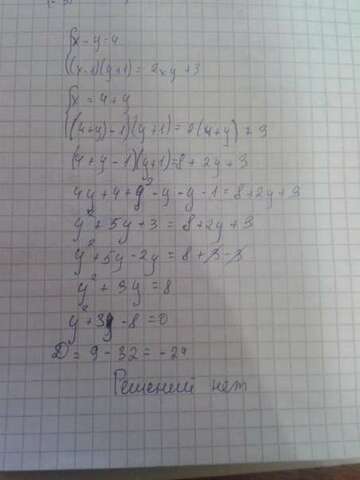 {x-y-4
{(x-1)(y+1)=2xy+3
{x=4+y
{((4+y)-1)(y+1)=2(4+y)+3
(4+y-1)(y+1)=8+2y+3
4y+4+y²-y-y-1=8+2y+3
y²+5y+3=8+2y+3
y²+5y-2y=8+3-3
y²+3y=8
y²+3y-8=0
D=9-32=-24
Решений нет